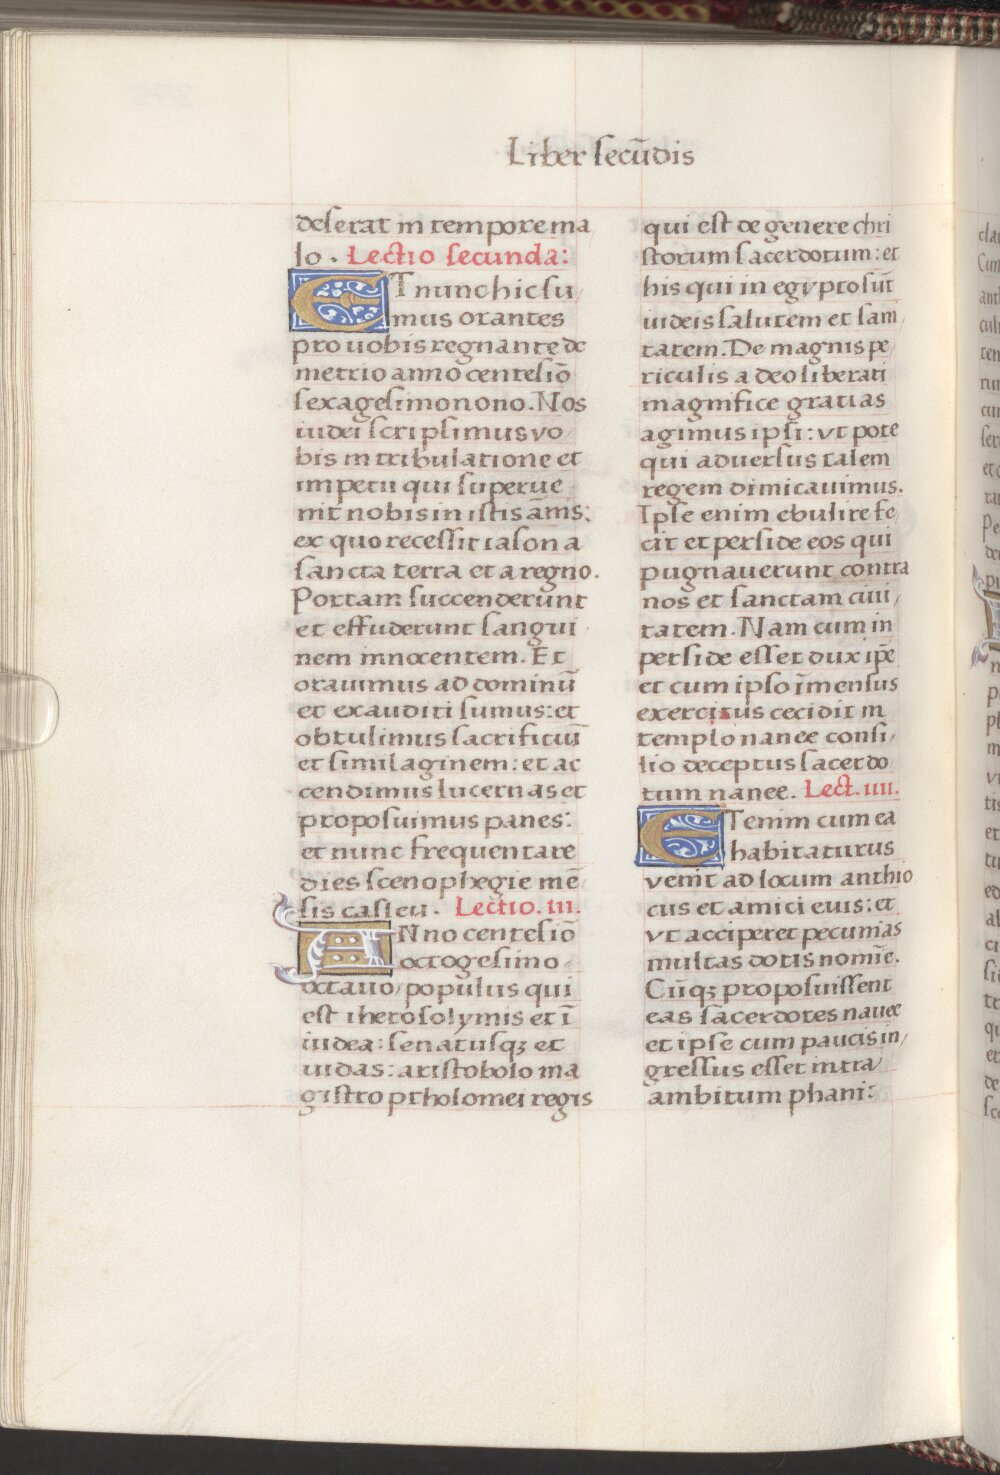 Liber secūdis
deserat in tempore ma
lo. Lectio secunda:
ET nunc hic su
mus orantes
pro uobis regnante de
metrio anno centesiō
sexagesimonono. Nos
iudei scripsimus vo
bis in tribulatione et
impetu qui superue
nit nobis in istis āms:
ex quo recessit iason a
sancta terra et a regno.
Portam succenderunt
et effuderunt sangui
nem innocentem. Et
orauimus ad dominū
et exauditi sumus: et
obtulimus sacrificiū
et similaginem: et ac
cendimus lucernas et
proposuimus panes:
et nunc frequentare
dies scenophegie mē
sis casleu. Lectio. iii.
ANno centesiō
octogesimo
octauo, populus qui
est iherosolymis et ī
iudea: senatusqꝫ et
uidas: aristobolo ma
gistro ptholomei regis
qui est de genere chri
storum sacerdotum: et
his qui in egypto sūt
iudeis salutem et sani
tatem. De magnis pe
riculis a deo liberati
magnifice gratias
agimus ipsi: vt pote
qui aduersus talem
regem dimicauimus.
Ipse enim ebulire fe
cit et perside eos qui
pugnauerunt contra
nos et sanctam ciui,
tatem. Nam cum in
perside esset dux ip̄e
et cum ipso īmensus
exercitus cecidit in
templo nanee consi,
lio deceptus sacerdo
tum nanee. Lect. iiii.
ETenim cum ea
habitaturus
venit ad locum anthio
cus et amici euis: et
vt acciperet pecunias
multas dotis nomīe.
Cūqꝫ proposuissent
eas sacerdotes nauee
et ipse cum paucis in,
gressus esset intra
ambitum phani: